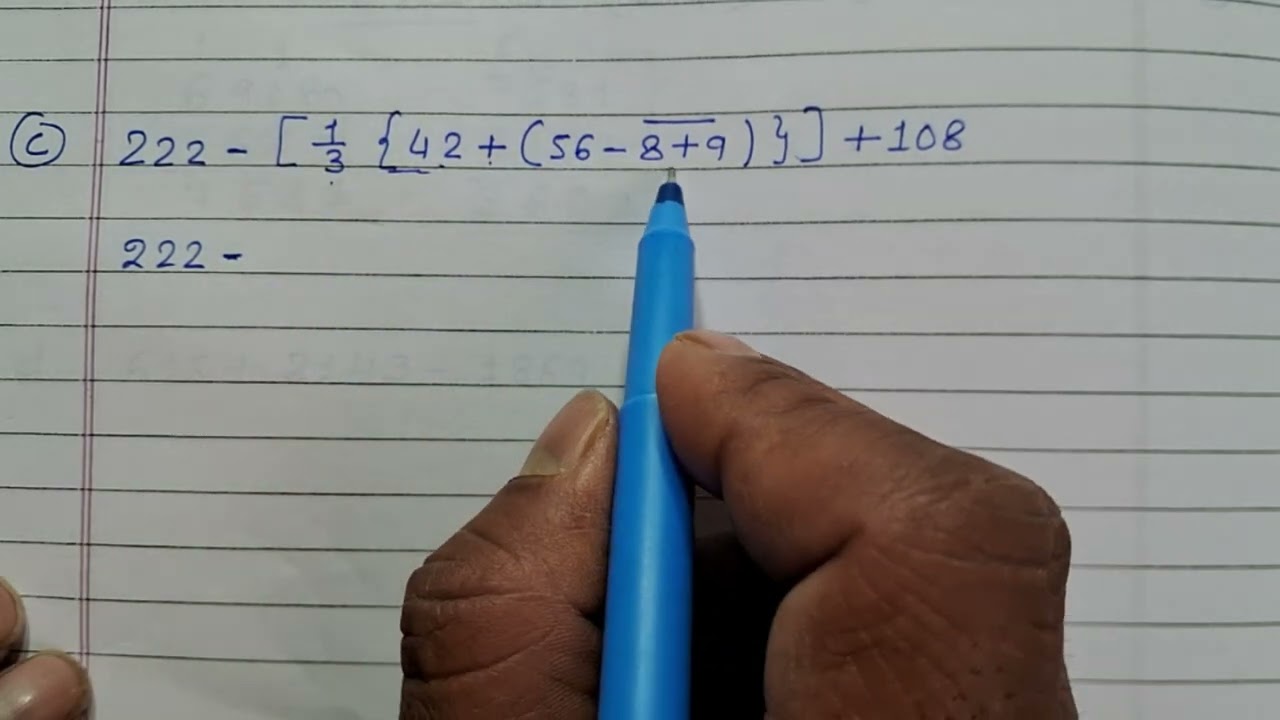 (c) 222 - [1/3 {42 + (56 - 8̅ ̅+̅ ̅9̅)}] + 108
222 -